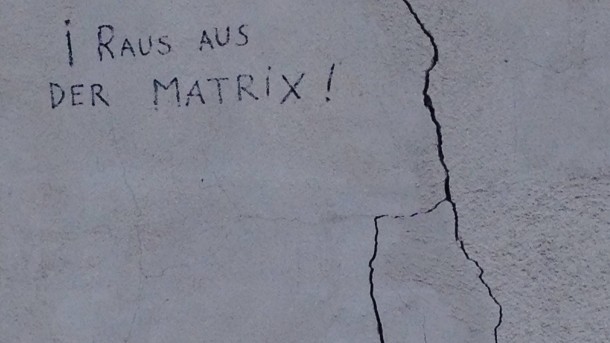 ¡ RAUS AUS
DER MATRIX !